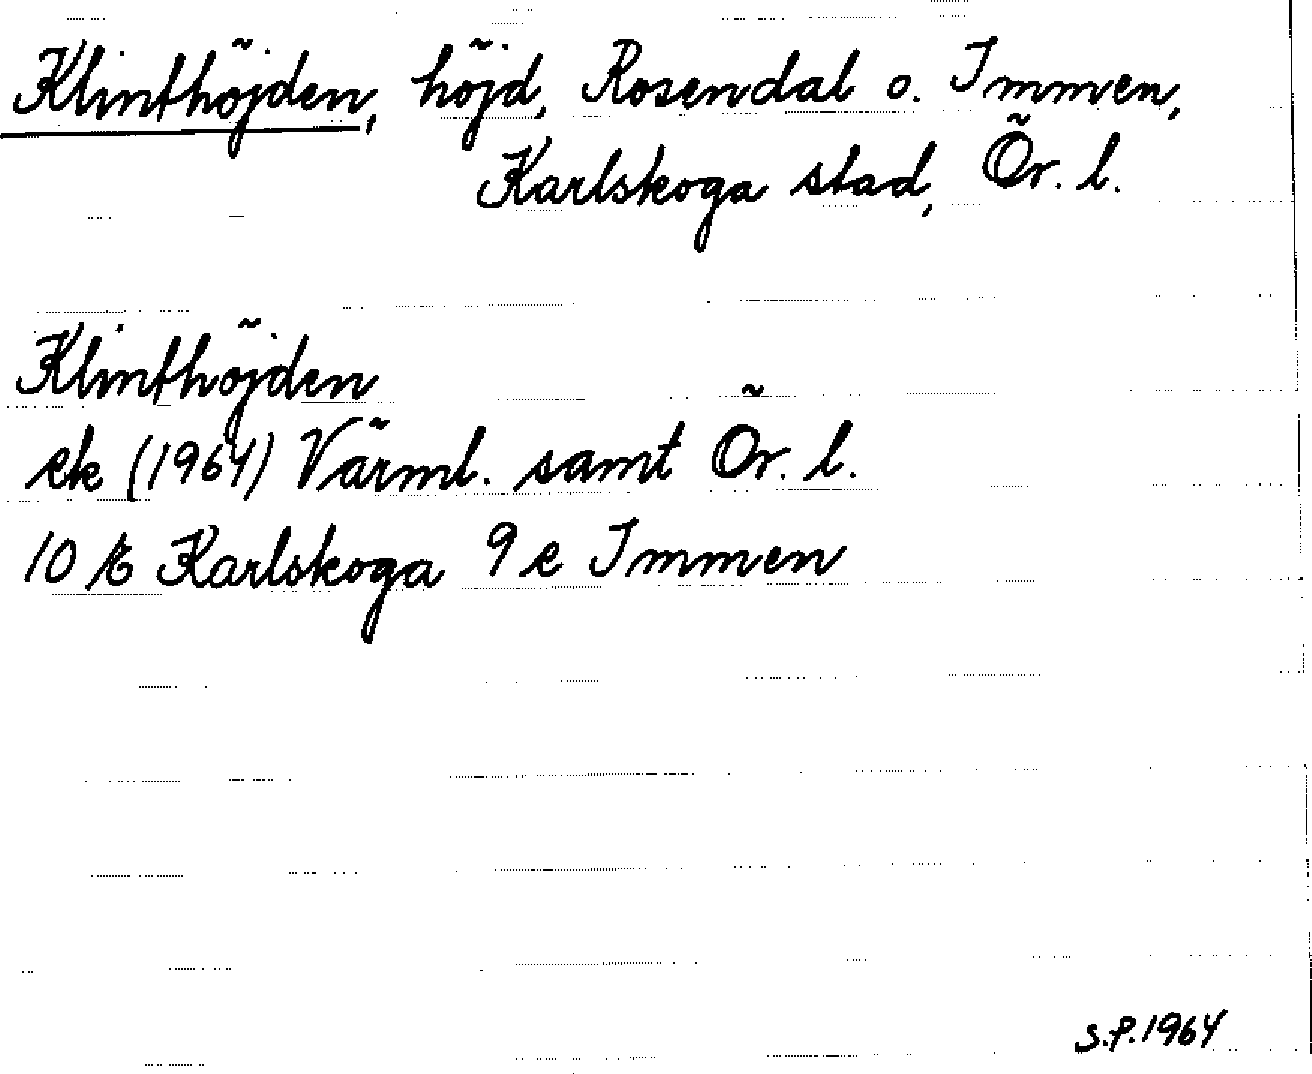 Klinthöjden, höjd, Rosendal o. Immen,
Karlskoga stad, Ör. l.
Klinthöjden
ek (1964) Värml. samt Ör. l.
10 E Karlskoga 9 e Immen
S.P. 1964